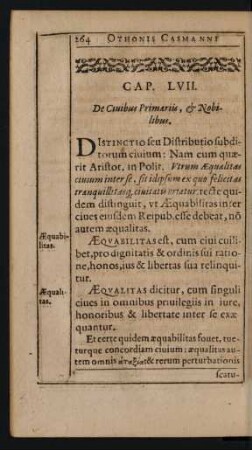 264 OTHONIS CASMANNI
CAP. LVII.
De Ciuibus Primariis, & Nobi-
libus.
DISTINCTIO seu Distributio subdi-
torum ciuium: Nam cum quæ-
rit Aristot. in Polit. Vtrum Æqualitas
ciuium inter se, sit id ipsum ex quo felicitas
tranquillitasq; ciuitatis oriatur, recte qui-
dem distinguit, vt Æquabilitas inter
ciues eiusdem Reipub. esse debeat, nō
autem æqualitas.
Æquabi-
litas.
ÆQVABILITAS est, cum ciui cuili-
bet, pro dignitatis & ordinis sui ratio-
ne, honos, ius & libertas sua relinqui-
tur.
Æquali-
tas.
ÆQVALITAS dicitur, cum singuli
ciues in omnibus priuilegiis in iure,
honoribus & libertate inter se exæ-
quantur.
Et certe quidem æquabilitas fouet, tue-
turque concordiam ciuium: æqualitas au-
tem omnis & rerum perturbationis
scatu-